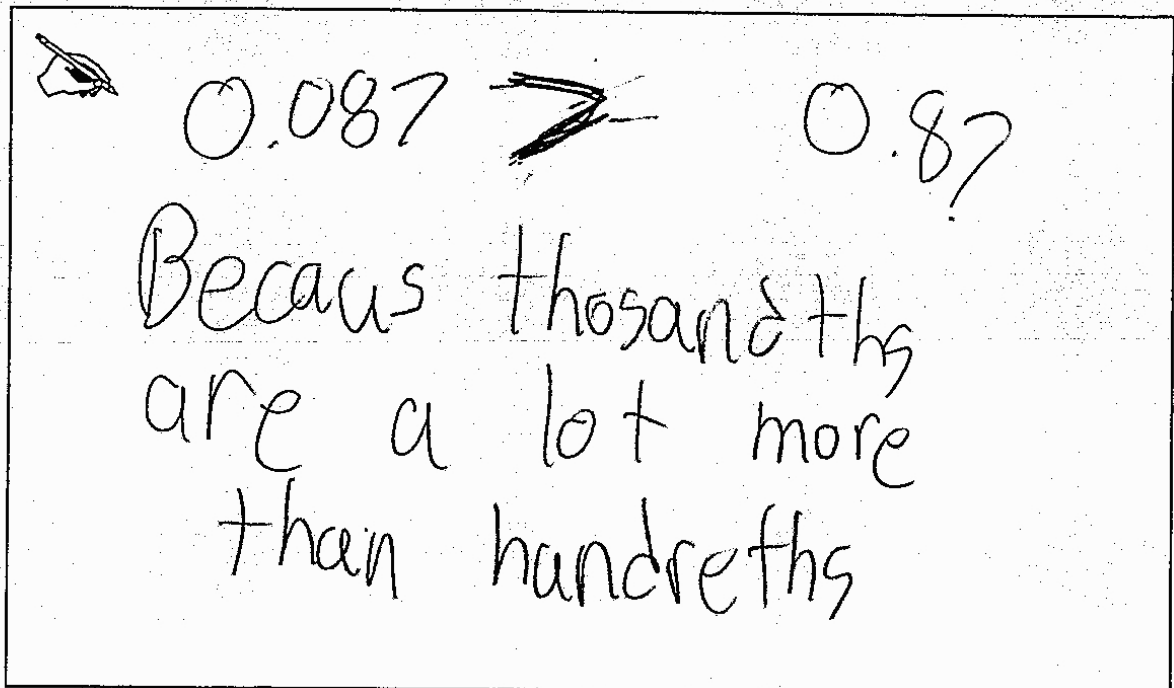 0.087 > 0.87
Becaus thosandths
are a lot more
than hundreths